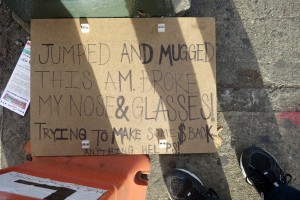 JUMPED AND MUGGED
THIS AM. BROKE
MY NOSE & GLASSES!
TRYING TO MAKE SOME $ BACK
ANYTHING HELPS!